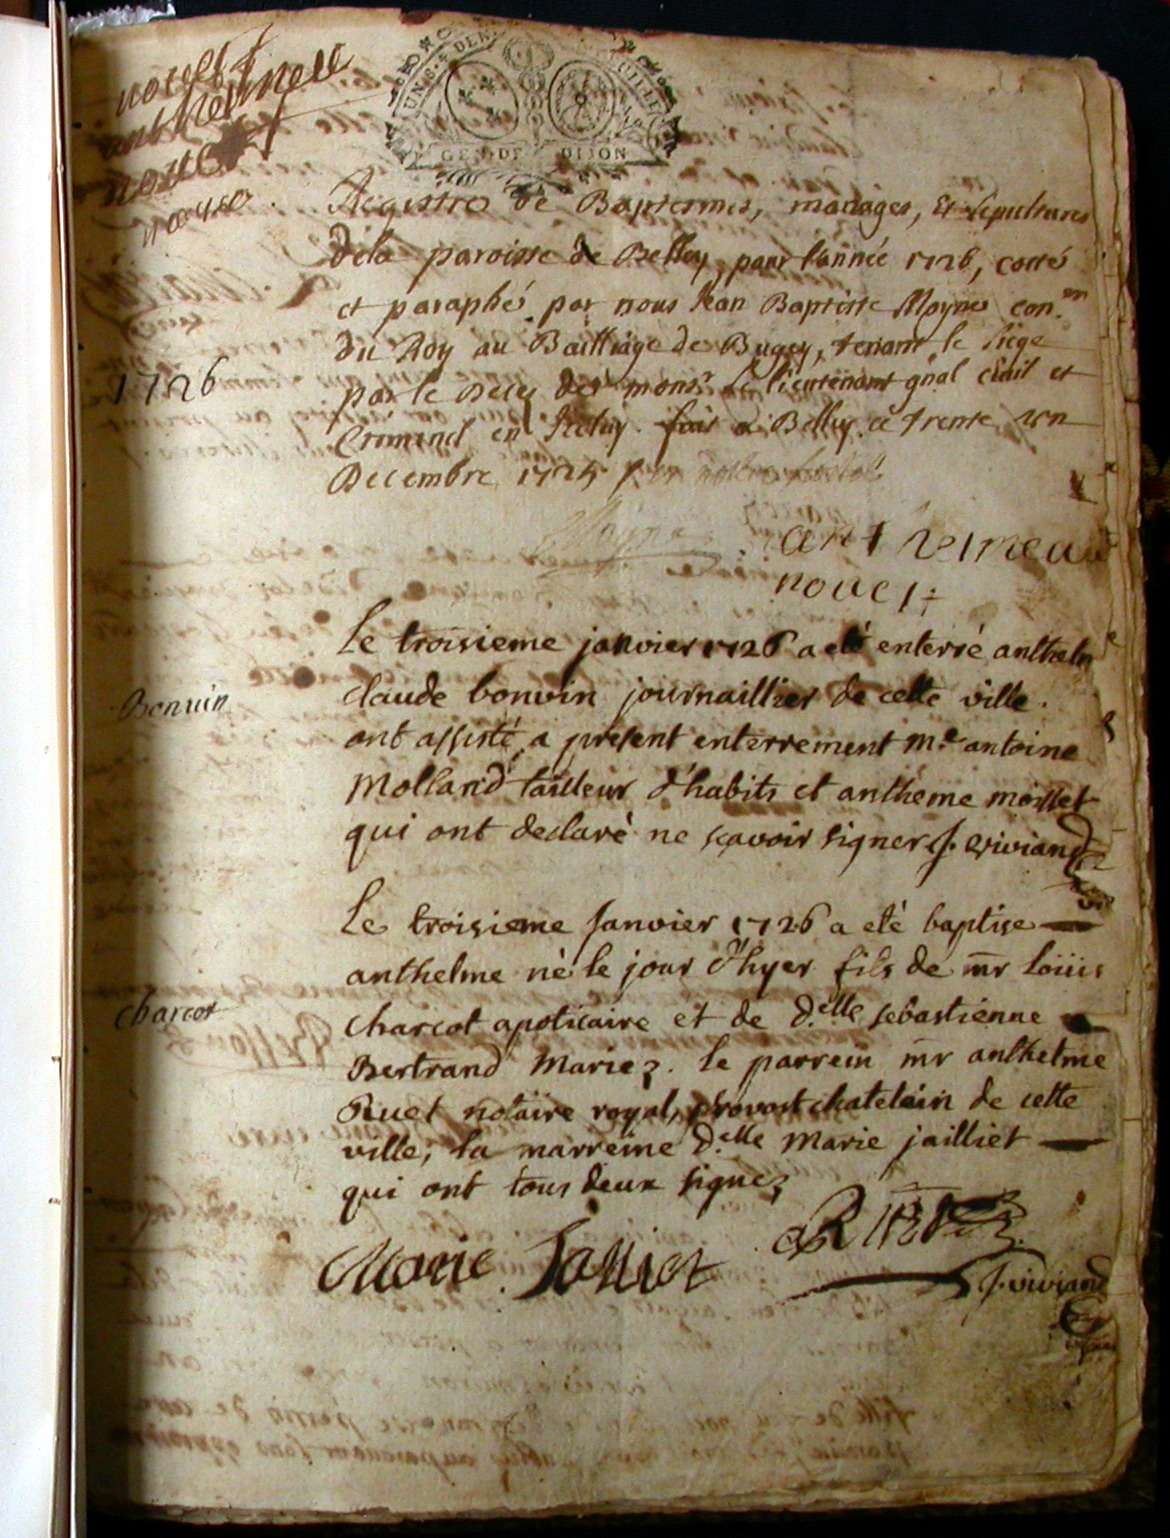 GEN DE DIJON
Registre de Baptesmes, mariages, Et Sepultures
dela paroisse de Belley, pour lannée 1726, cotté
et paraphé par nous Jean Baptiste Moyne con.er
du Roy au Bailliage de Bugey, tenant le siege
1726
par le Deces de mons.r le lieutenant gñal ciuil et
Criminel fait a Belley ce trente un
Decembre 1725
Moyne
anthelme
nouet
Le troisieme janvier 1726 a eté enterré anthelm
Bonuin
claude bonvin journaillier de cette ville.
ont assisté a present enterrement m.e antoine
Molland tailleur d'habits et anthéme
qui ont declaré ne sçavoir signer J. viviand
Le troisieme Janvier 1726 a eté baptise
anthelme né le jour d'hyer fils de mr loüis
charcot
charcot apoticaire et de d.elle sebastienne
Bertrand Mariez. le parrein mr anthelme
Ruet notaire royal, provost chatelain de cette
ville, la marreine d.elle Marie jailliet
qui ont tous deux signez
Marie Jalliet
J. viviand